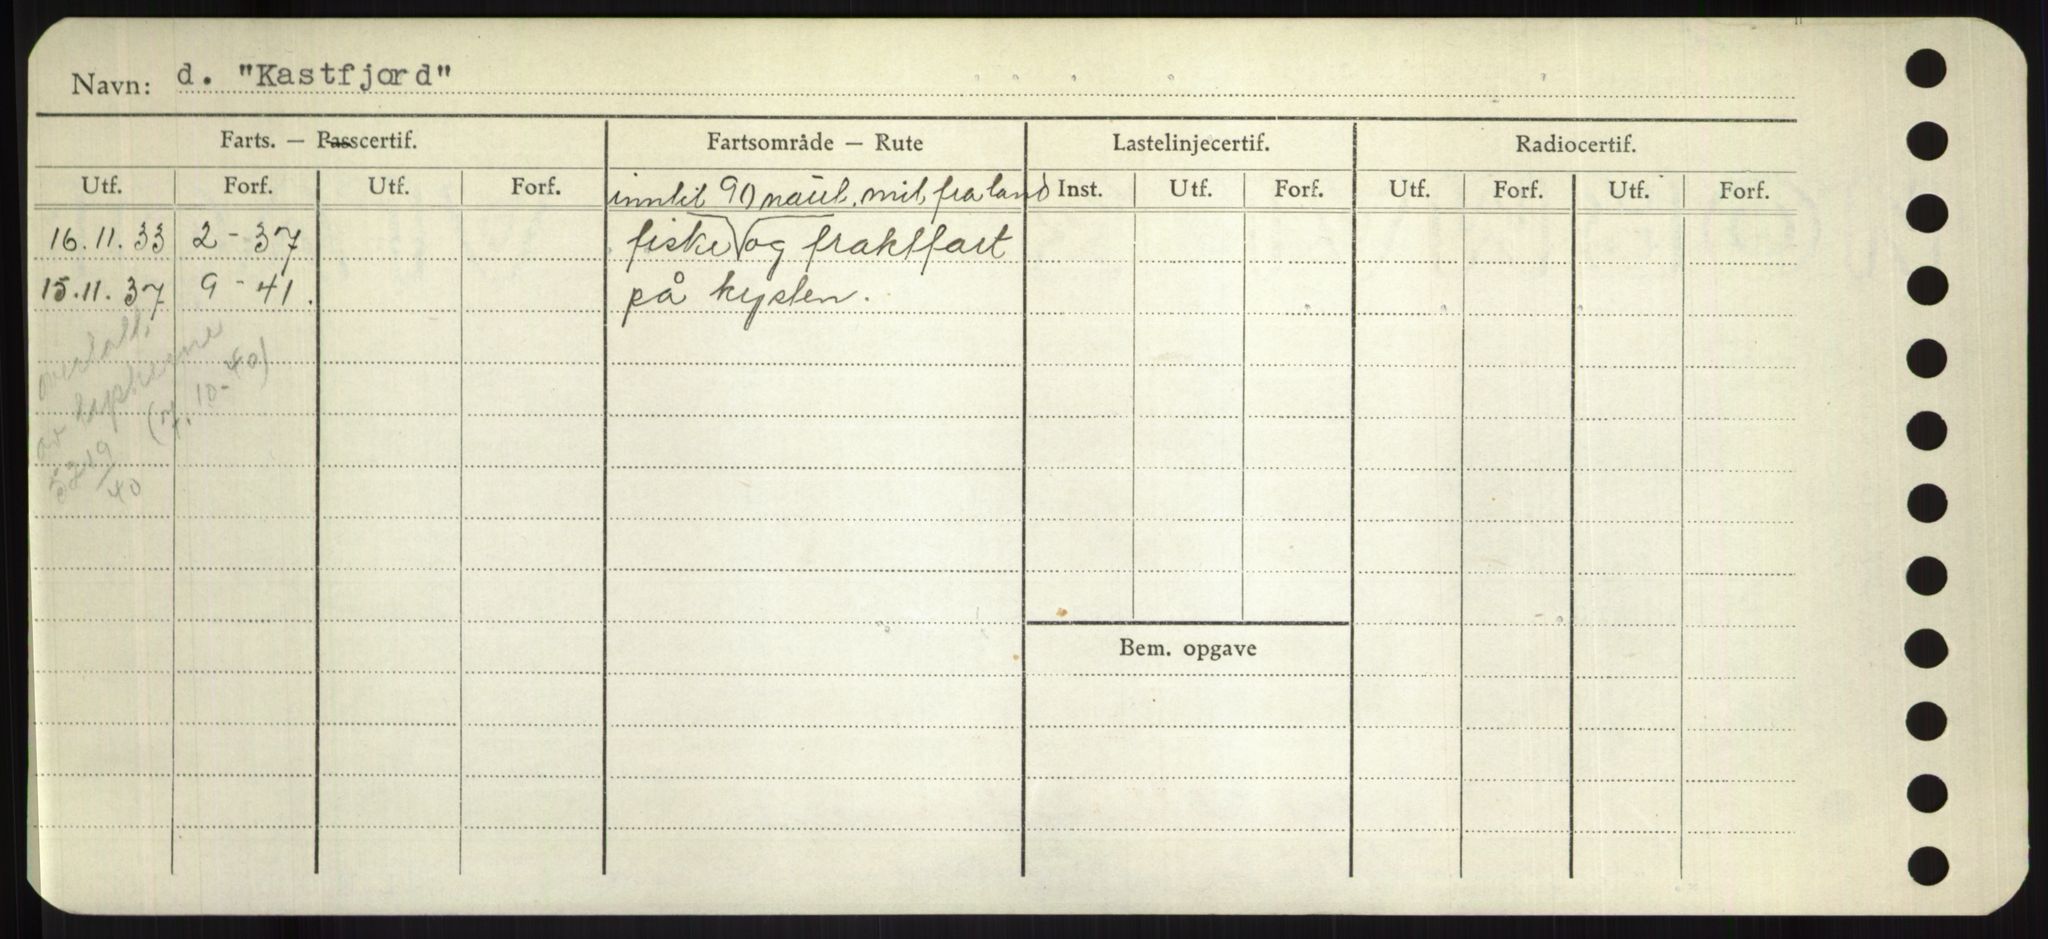 Navn: d. "Kastfjord"
Farts. — Passcertif. Fartsområde — Rute Lastelinjecertif. Radiocertif.
Utf. Forf. Utf. Forf. Inst. Utf. Forf. Utf. Forf. Utf. Forf.
inntil 90 naut. mil fra land
16.11.33 2 - 37 fiske og fraktfart
15.11.37 9 - 41. på kysten.
overtatt
av tyskerne
(7.10-40)
40
Bem. opgave